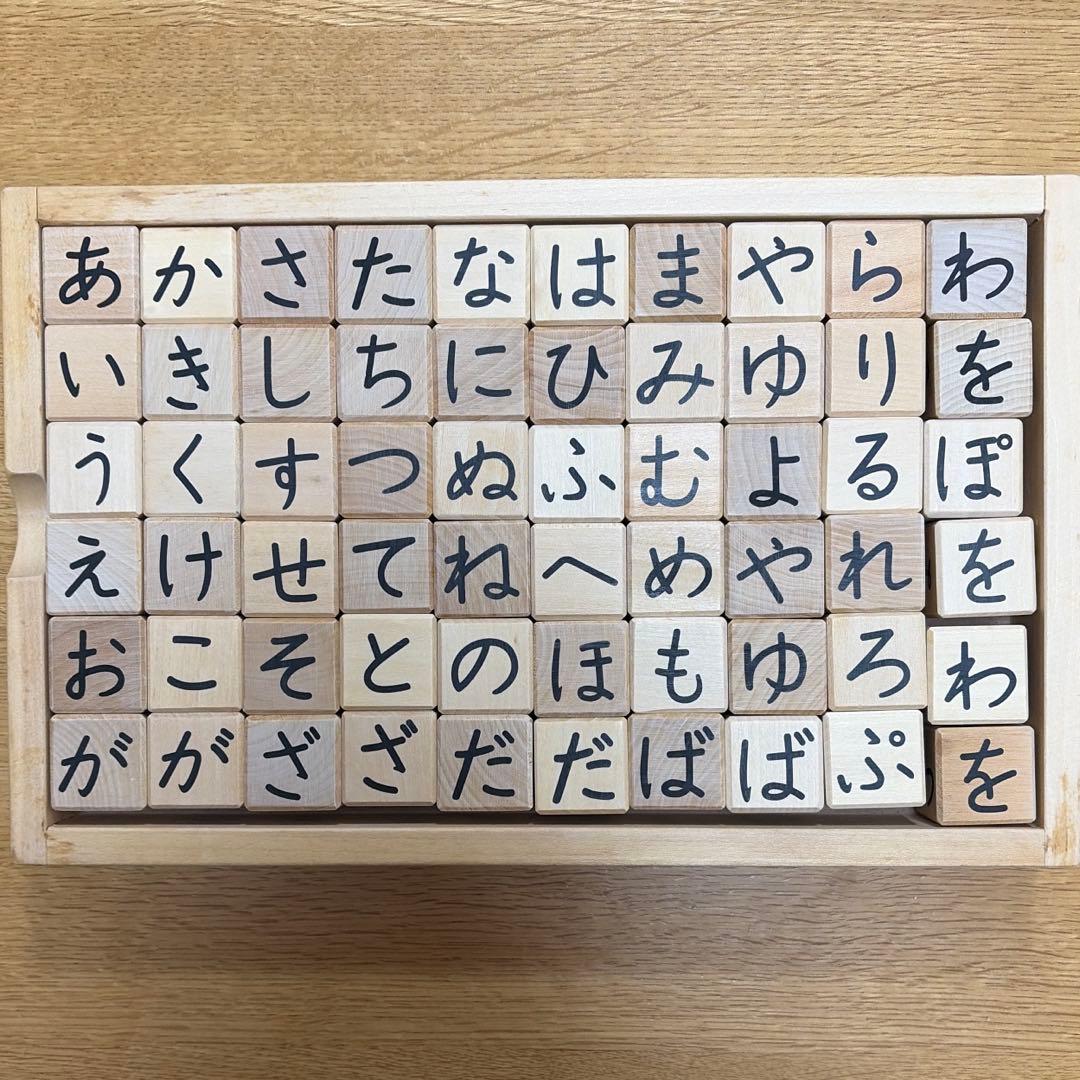 あかさたなはまやらわ
いきしちにひみゆりを
うくすつぬふむよるぽ
えけせてねへめやれを
おこそとのほもゆろわ
ががざざだだばばぷを